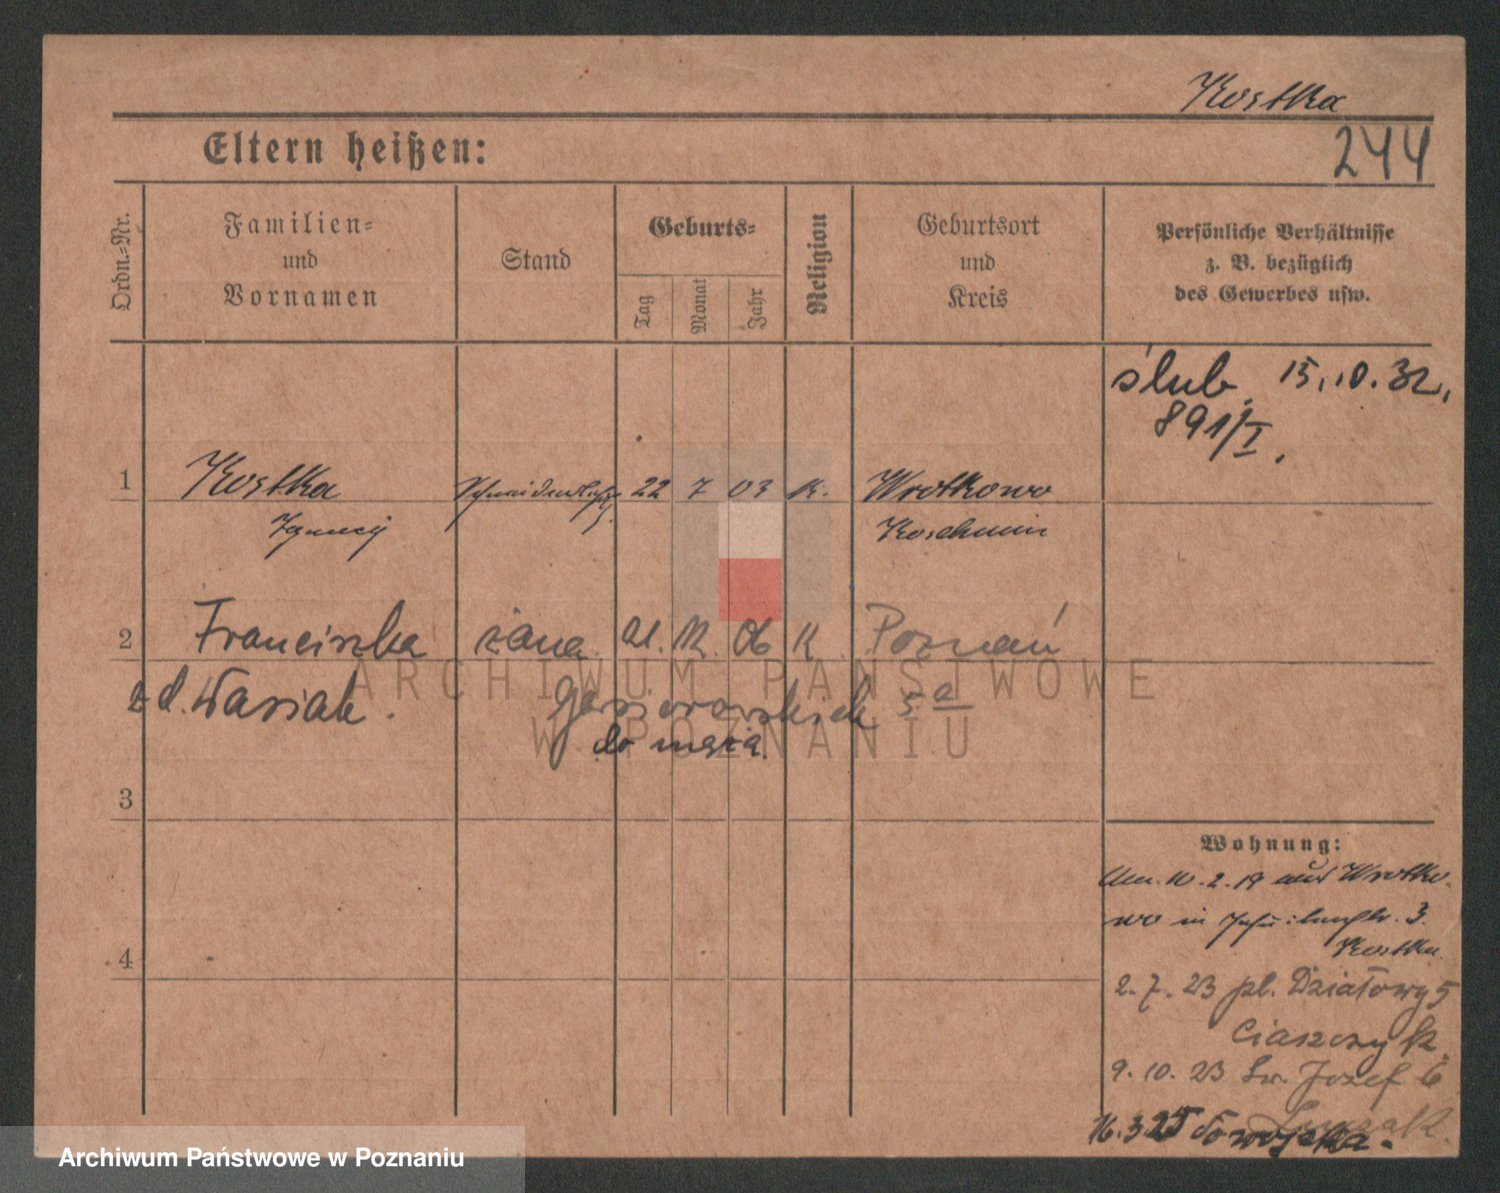 Kostka
Eltern heißen:
244
Ordn.=Nr.
Familien=
und
Vornamen
Stand
Geburts=
Tag
Monat
Jahr
Religion
Geburtsort
und
Kreis
Persönliche Verhältnisse
z. B. bezüglich
des Gewerbes usw.
ślub. 15.10.32.
891/I.
1 Kostka 22 7 03 K. Wrotkowo
Ignacy Koschmin
2 Franciszka żona 21. 12. 06 K Poznań
z d. Wasiak. Gąsiorowskich 5a
do męża.
3
4
Wohnung:
Am. 10.2.19 aus Wrotko-
wo in 3.
Kostka
2.7.23 pl. Działowy 5
Ciaszczyk.
9.10.23 św. Józef 6
16.3.25
ARCHIWUM PAŃSTWOWE
W POZNANIU
Archiwum Państwowe w Poznaniu